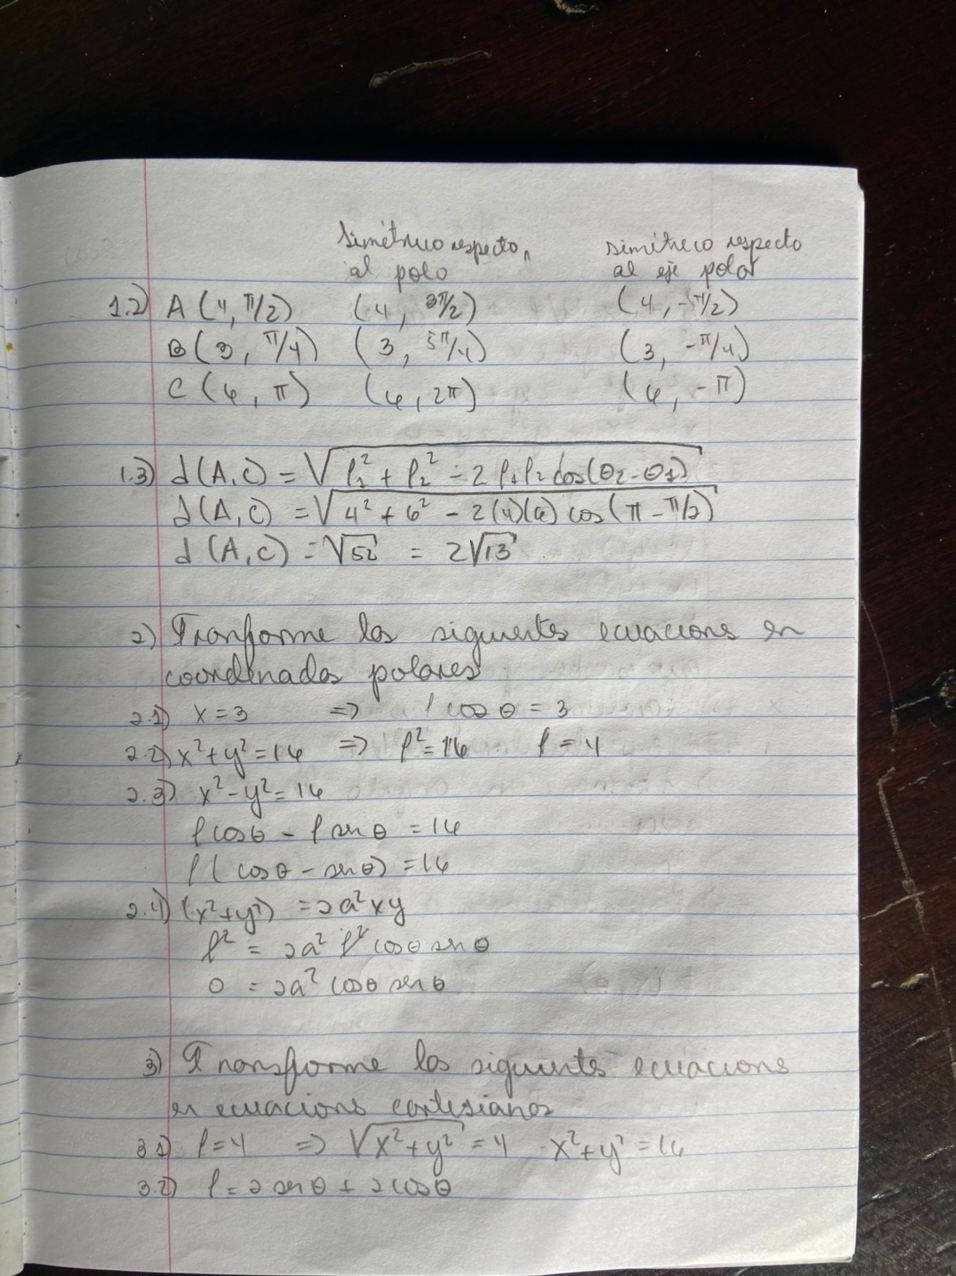 Simétrico respecto simétrico respecto
al polo al eje polar
1.2) A (4, π/2) (4, 3π/2) (4, -π/2)
B (3, π/4) (3, 5π/4) (3, -π/4)
C (6, π) (6, 2π) (6, -π)
1.3) d(A,C) = √(ρ₁² + ρ₂² - 2 ρ₁ρ₂ cos(θ₂-θ₁))
d(A,C) = √(4² + 6² - 2(4)(6) cos(π - π/2))
d(A,C) = √52 = 2√13
2) Tranforme las siguientes ecuacions en
coordenadas polares
2.1) x=3 => ρ cos θ = 3
2.2) x²+y²=16 => ρ²=16 ρ=4
2.3) x²-y²=16
ρcosθ - ρsenθ = 16
ρ(cosθ-senθ) = 16
2.4) (x²+y²) = 2a²xy
ρ² = 2a²ρ²cosθsenθ
0 = 2a²cosθsenθ
3) Transforme las siguients ecuacions
en ecuacions cartesianas
3.1) ρ=4 => √(x²+y²) = 4 x²+y²=16
3.2) ρ=2senθ+2cosθ